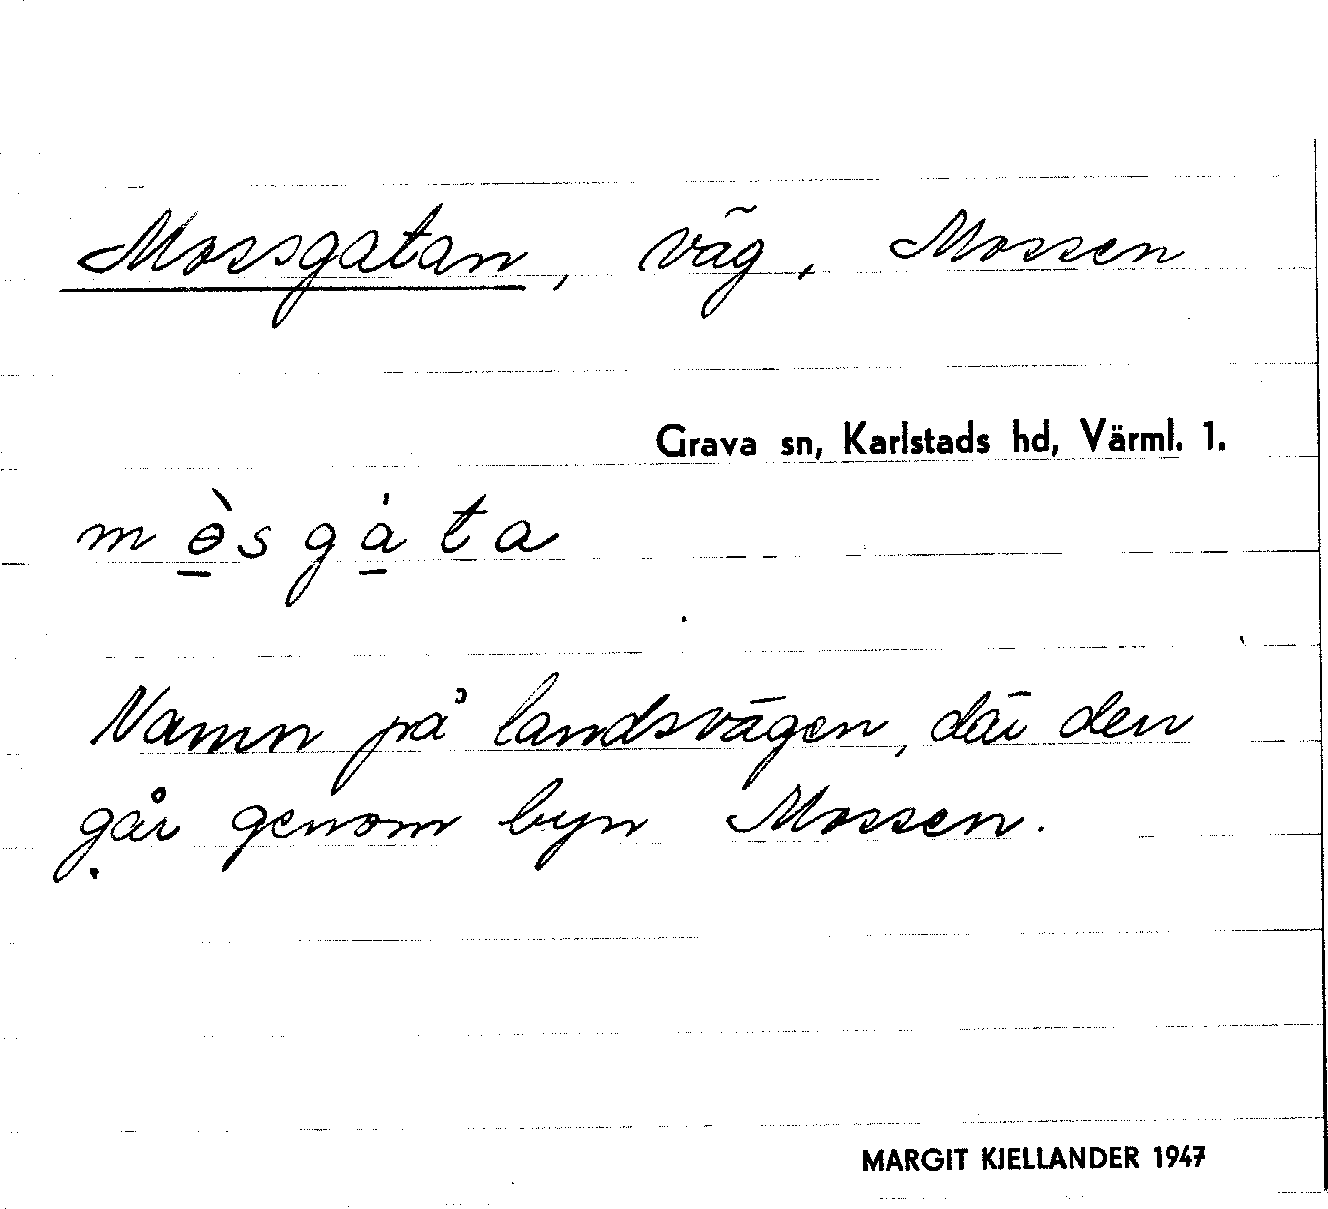 Mossgatan, väg, Mossen
Grava sn, Karlstads hd, Värml. 1.
m ə̱̀ s g a̱̍ t a
Namn på landsvägen, där den
går genom byn Mossen.
MARGIT KJELLANDER 1947